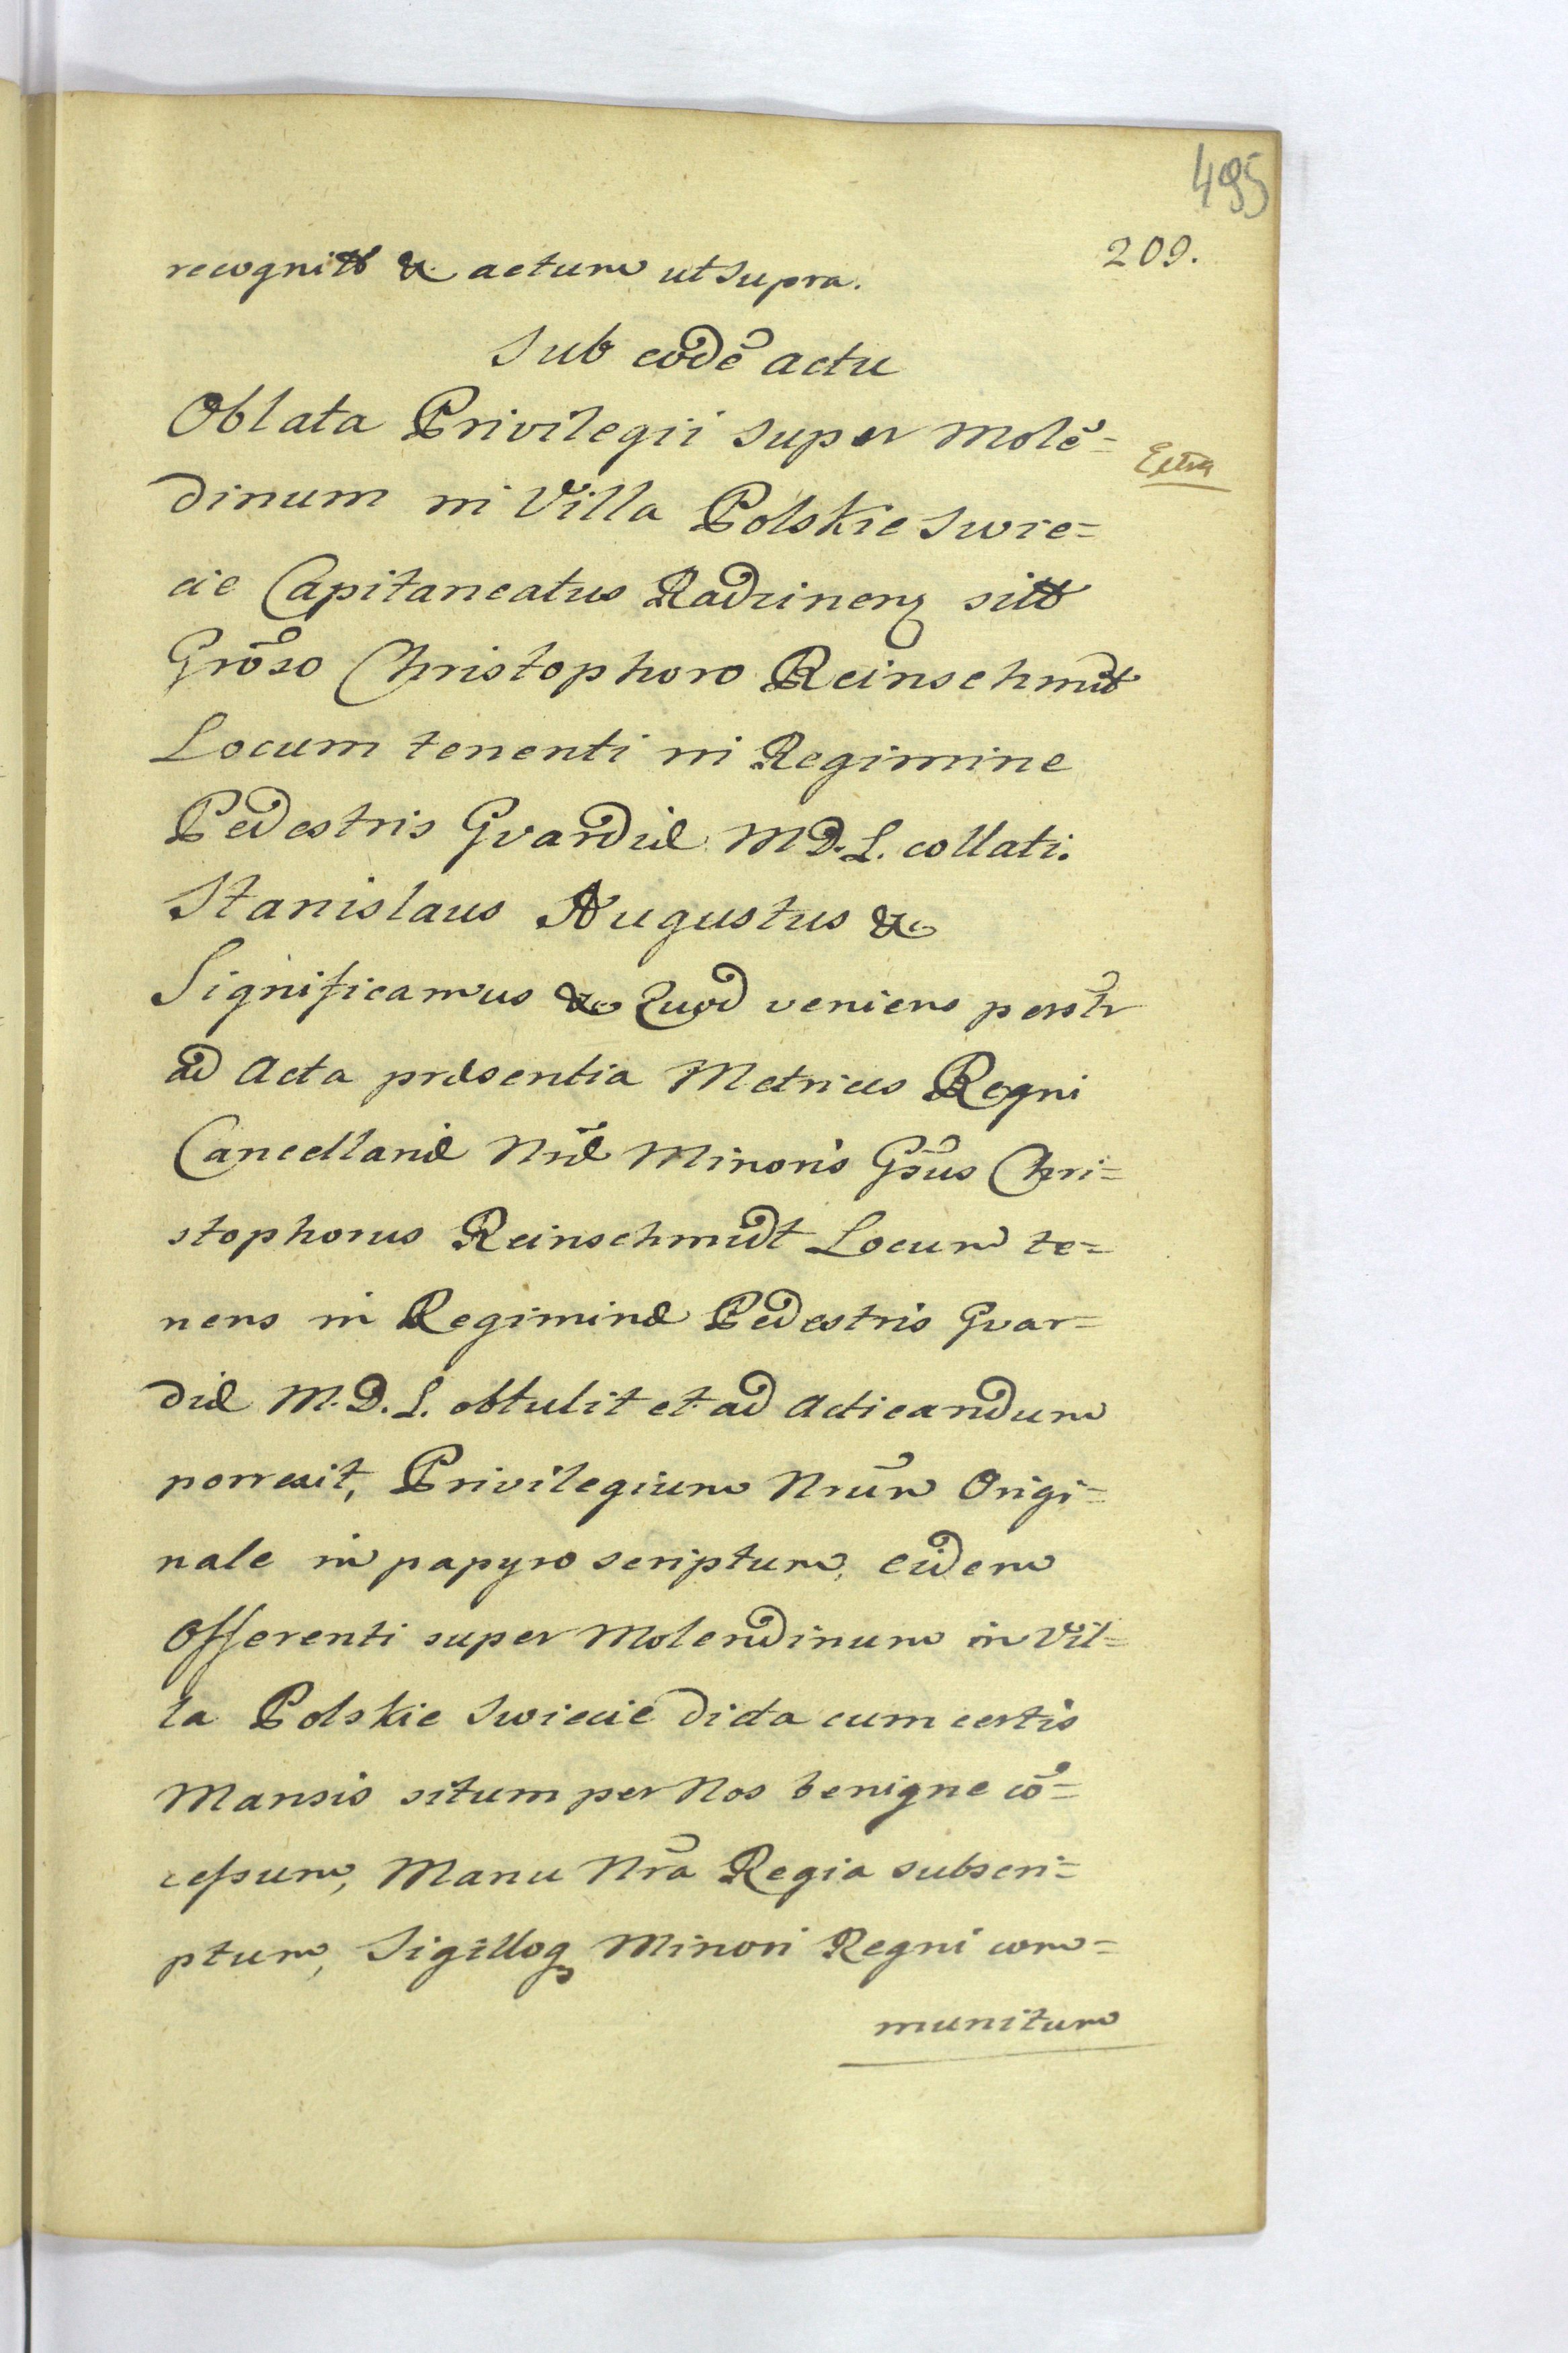 495
209.
recognitt & actum ut supra.
Sub eodē actu
Oblata Privilegii super Molē=
dinum in Villa Polskie Swie=
cie Capitaneatus Radzinen sitt
Grōso Christophoro Reinschmidt
Locum tenenti in Regimine
Pedestris Gvardiæ M D. L. collati.
Stanislaus Augustus &
Significamus & Quod veniens persr
ad Acta præsentia Metrices Regni
Cancellariæ Nræ Minoris Gsus Chri=
stophorus Reinschmidt Locum te=
nens in Regimine Pedestris Gvar=
diæ M. D. L. obtulit et ad Acticandum
porrexit, Privilegium Nrum Origi=
nale in papyro scriptum, eidem
Offerenti super Molendinum in Vil=
la Polskie Swiecie dicta cum certis
Mansis situm per Nos benigne cō=
cessum, Manu Nrā Regia subscri=
ptum, Sigilloq Minori Regni com=
munitum